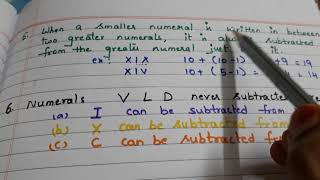 5. When a smaller numeral is written in between
two greater numerals, it is subtracted
from the greater numeral just it.
ex: XIX 10+(10-1) +9 = 19
XIV 10+(5-1) = 14
6. Numerals V L D never subtracted
(a) I can be subtracted from
(b) X can be subtracted from
(c) C can be subtracted from